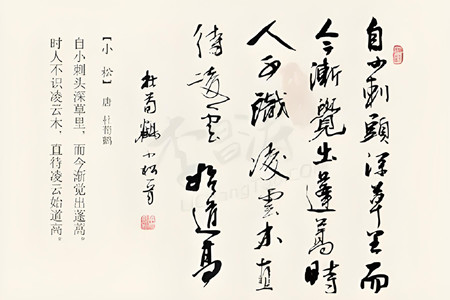 自小刺頭深草里而
今漸覺出蓬蒿時
人不識凌雲木直
待凌雲始道高
杜荀鶴小松一首
【小松】 唐 杜荀鹤
自小刺头深草里，而今渐觉出蓬蒿。
时人不识凌云木，直待凌云始道高。